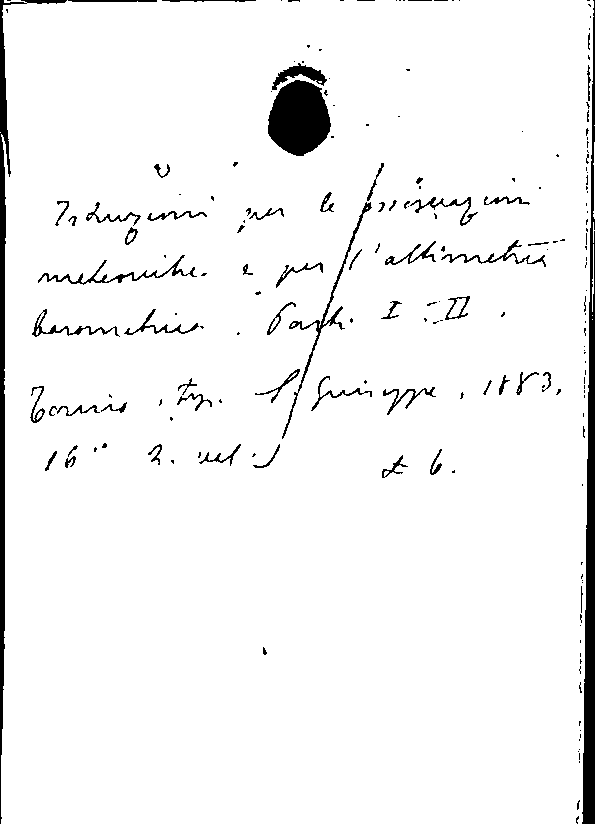 Istruzioni per le osservazioni
meteoriche e per l'altimetria
barometrica. Parti I-II.
Torino, typ. S. Giuseppe, 1883.
16° 2. vol.
£ 6.